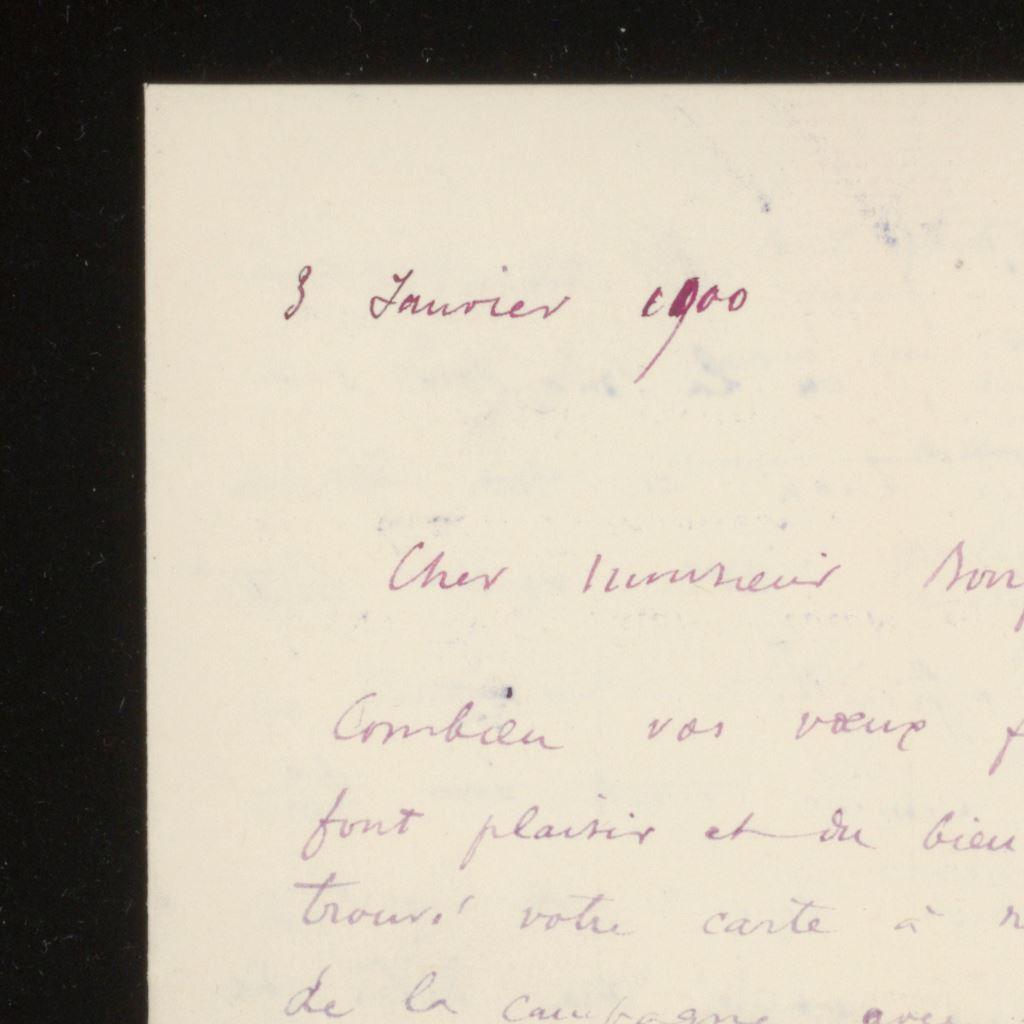 3 Janvier 1900
Cher Monsieur
Combien vos vœux
font plaisir et du bien
trouvé votre carte à
de la campagne avec